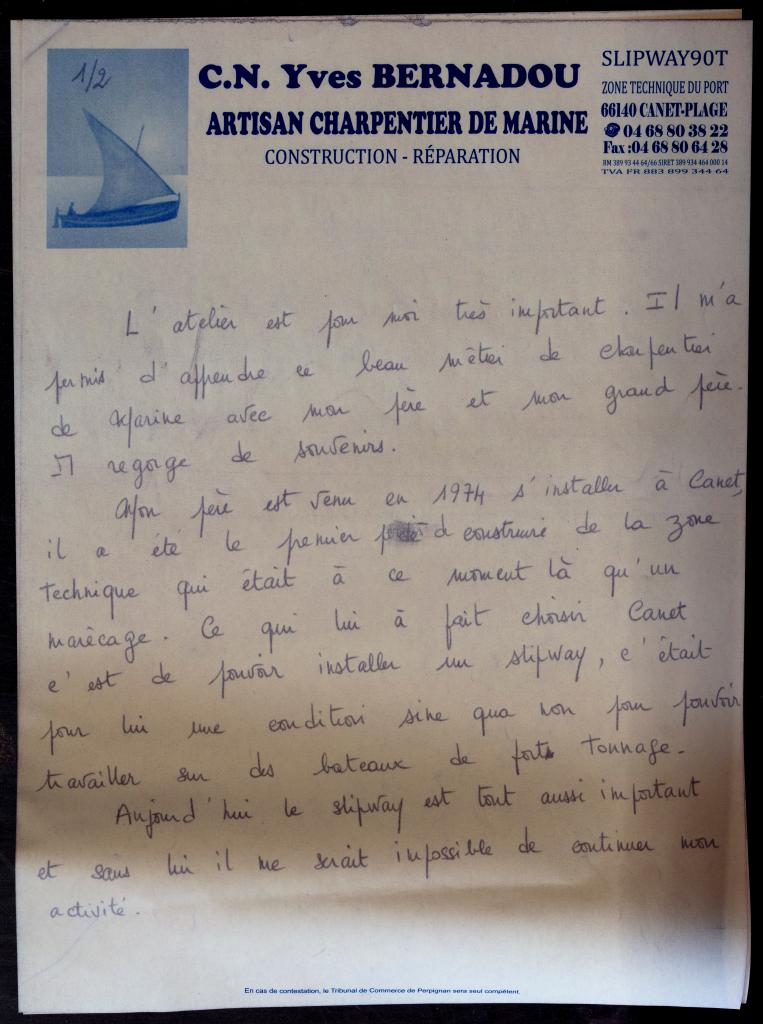 1/2
C.N. Yves BERNADOU
ARTISAN CHARPENTIER DE MARINE
CONSTRUCTION - RÉPARATION
SLIPWAY90T
ZONE TECHNIQUE DU PORT
66140 CANET-PLAGE
☎ 04 68 80 38 22
Fax :04 68 80 64 28
RM 389 93 44 64/66 SIRET 389 934 464 000 14
TVA FR 883 899 344 64
L'atelier est pour moi très important. Il m'a
permis d'apprendre ce beau métier de charpentier
de Marine avec mon père et mon grand père.
Il regorge de souvenirs.
Mon père est venu en 1974 s'installer à Canet,
il a été le premier à construire de la zone
technique qui était à ce moment là qu'un
marécage. Ce qui lui à fait choisir Canet
c'est de pouvoir installer un slipway, c'était
pour lui une condition sine qua non pour pouvoir
travailler sur des bateaux de fort tonnage.
Aujourd'hui le slipway est tout aussi important
et sans lui il me serait impossible de continuer mon
activité.
En cas de contestation, le Tribunal de Commerce de Perpignan sera seul compétent.